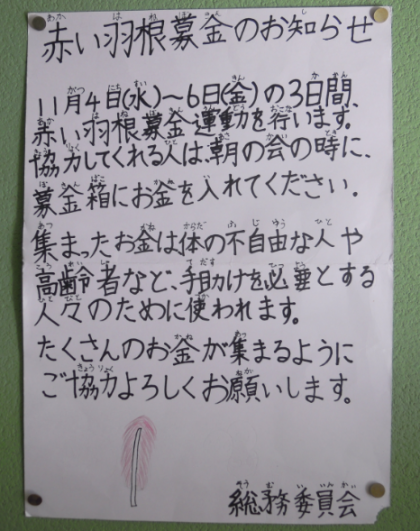 赤い羽根募金のお知らせ
11月4日(水)～6日(金)の3日間、
赤い羽根募金運動を行います。
協力してくれる人は、朝の会の時に、
募金箱にお金を入れてください.
集まったお金は体の不自由な人や
高齢者など、手助けを必要とする
人々のために使われます。
たくさんのお金が集まるように
ご協力よろしくお願いします。
総務委員会